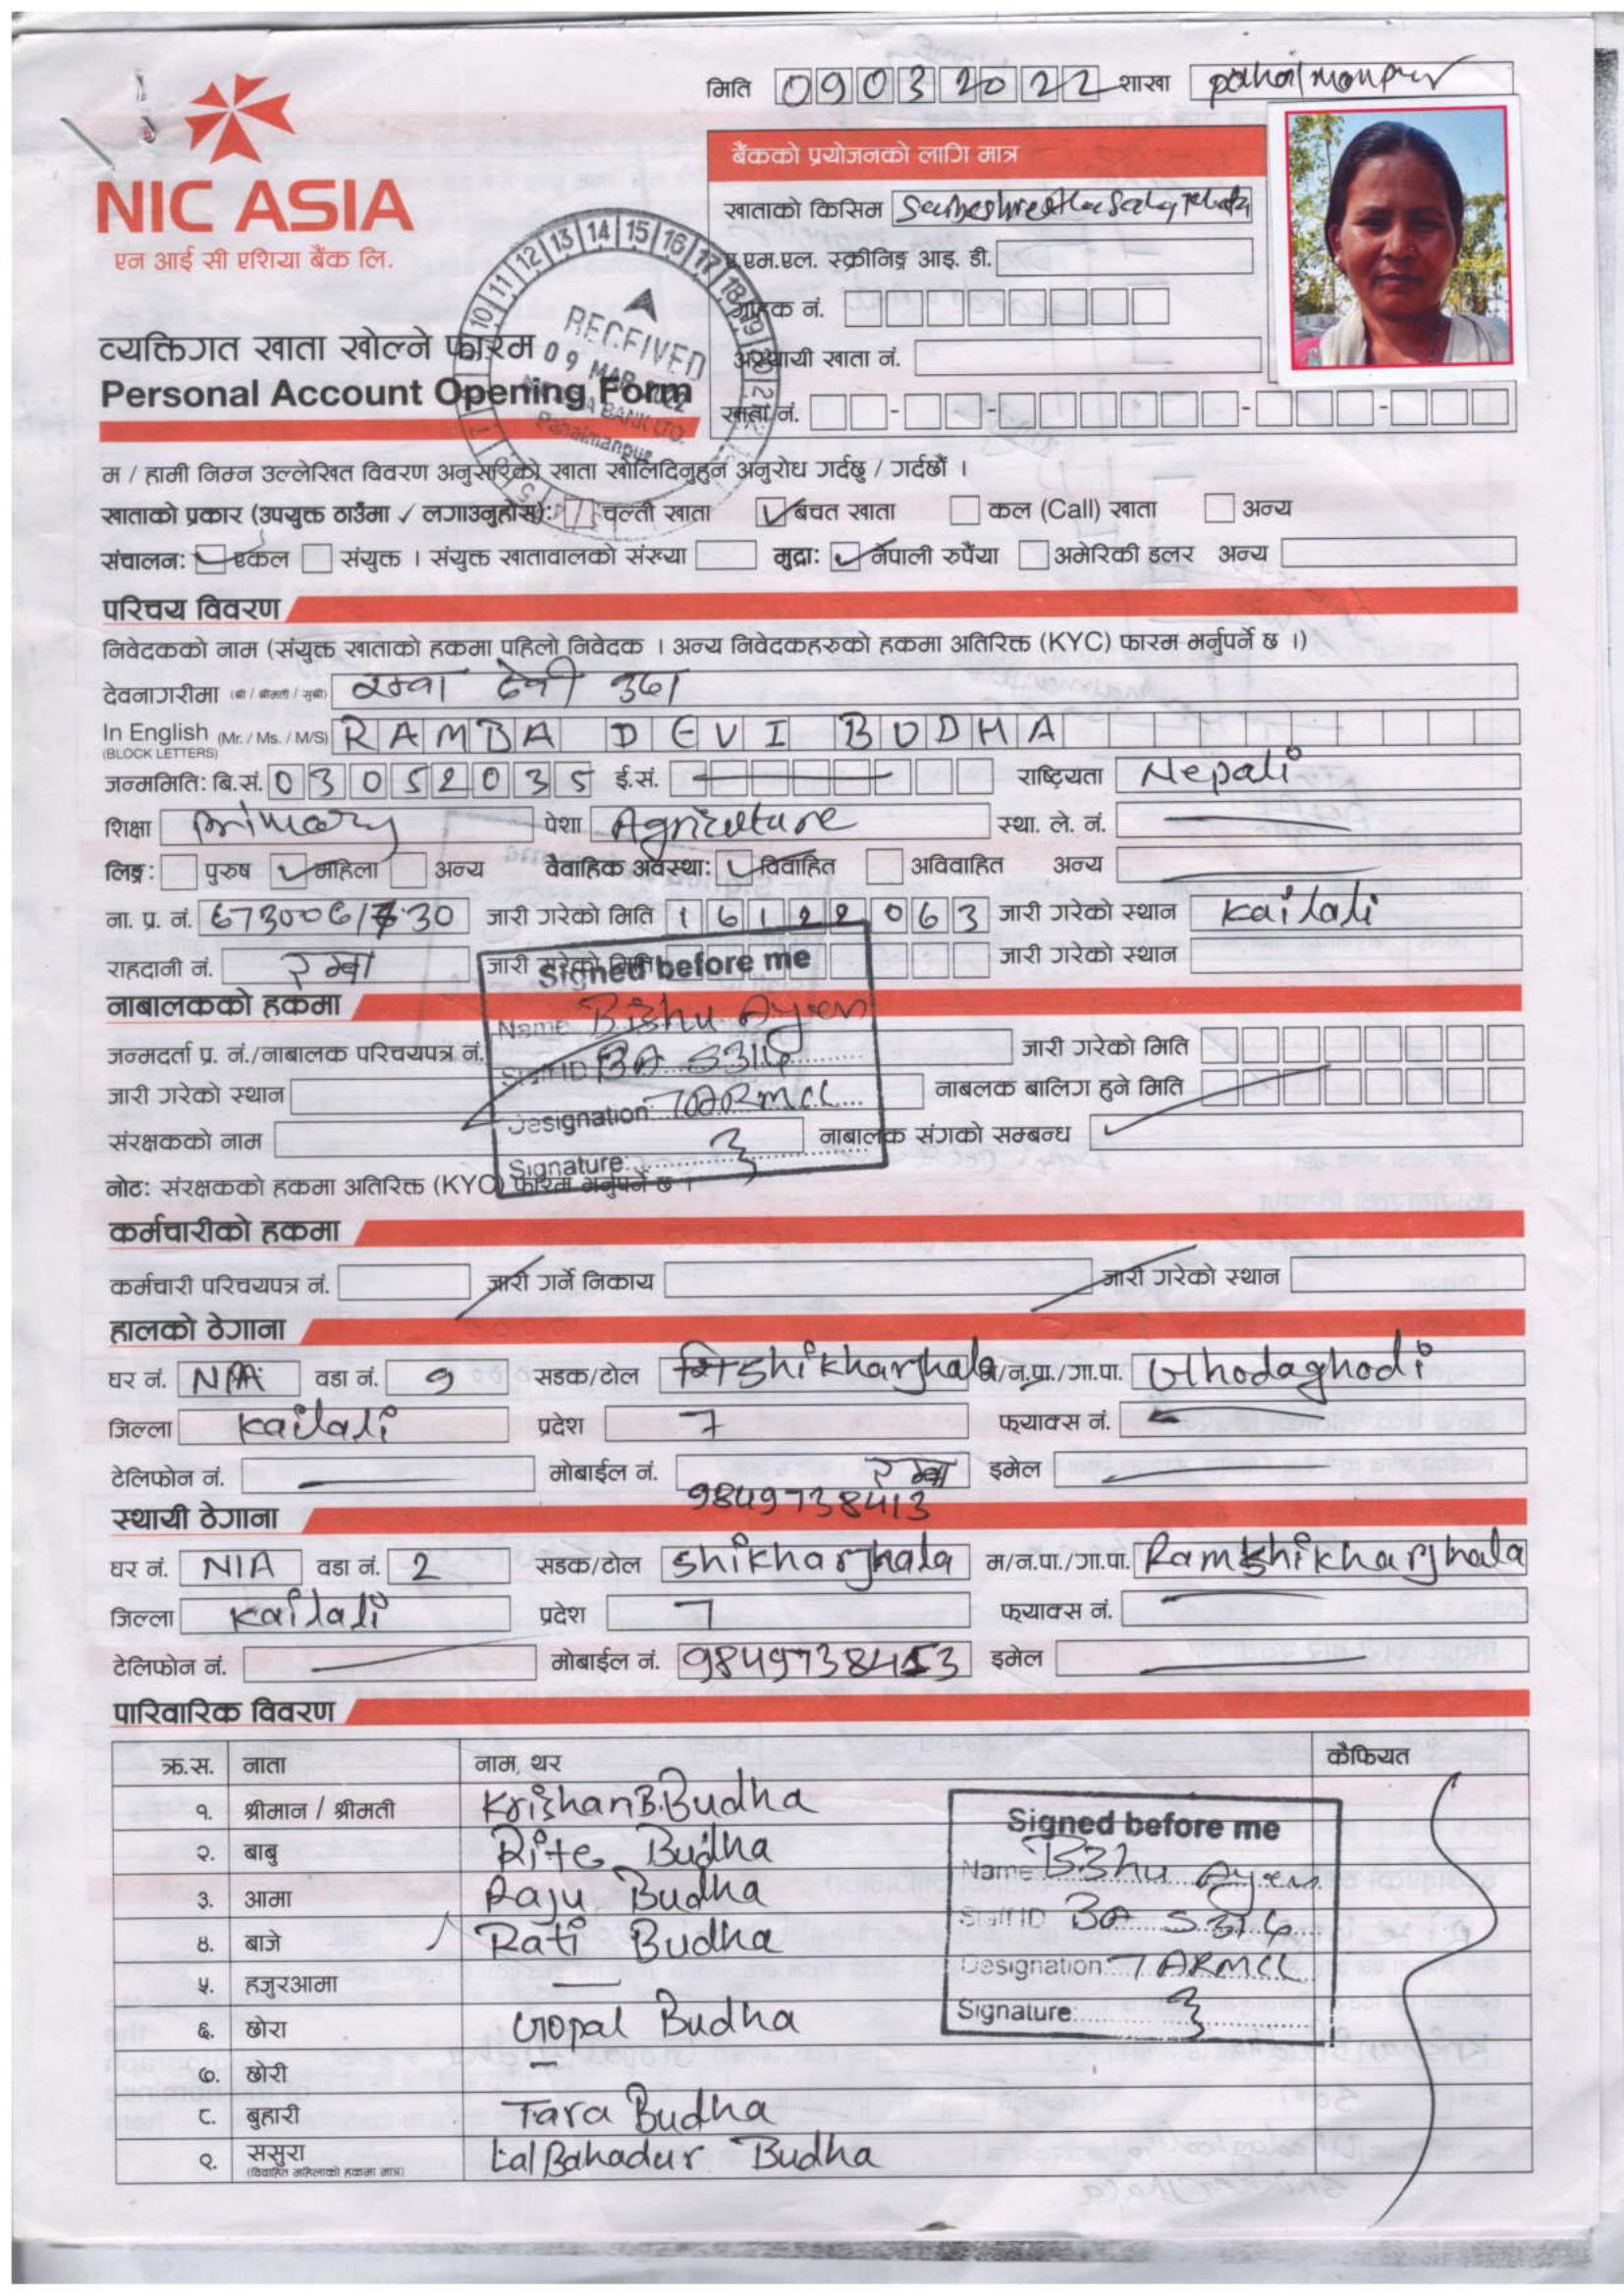 मिति 09032022 शाखा pahalmanpur
NIC ASIA
एन आई सी एशिया बैंक लि.
बैंकको प्रयोजनको लागि मात्र
खाताको किसिम
ए.एम.एल. स्क्रीनिङ्ग आइ. डी.
ग्राहक नं.
अस्थायी खाता नं.
खाता नं.
10 11 12 13 14 15 16 17 18 19 20 21
RECEIVED
09 MAR 2022
NIC ASIA BANK LTD.
Pahalmanpur
व्यक्तिगत खाता खोल्ने फारम
Personal Account Opening Form
म / हामी निम्न उल्लेखित विवरण अनुसारको खाता खोलिदिनुहुन अनुरोध गर्दछु / गर्दछौं ।
खाताको प्रकार (उपयुक्त ठाउँमा ✓ लगाउनुहोस्): चल्ती खाता ✓ बचत खाता कल (Call) खाता अन्य
संचालन: ✓ एकल संयुक्त । संयुक्त खातावालको संख्या मुद्रा: ✓ नेपाली रुपैंया अमेरिकी डलर अन्य
परिचय विवरण
निवेदकको नाम (संयुक्त खाताको हकमा पहिलो निवेदक । अन्य निवेदकहरुको हकमा अतिरिक्त (KYC) फारम भर्नुपर्ने छ ।)
देवनागरीमा (श्री / श्रीमती / सुश्री) रम्बा देवी बुढा
In English (Mr. / Ms. / M/S) RAMBA DEVI BUDHA
(BLOCK LETTERS)
जन्ममिति: बि.सं. 03052035 ई.सं. राष्ट्रियता Nepali
शिक्षा primary पेशा Agriculture स्था. ले. नं.
लिङ्ग: पुरुष ✓ महिला अन्य वैवाहिक अवस्था: ✓ विवाहित अविवाहित अन्य
ना. प्र. नं. जारी गरेको मिति 16122063 जारी गरेको स्थान kailali
राहदानी नं. जारी गरेको मिति जारी गरेको स्थान
Signed before me
Name Bishu
Staff ID BA 5316
Designation:
Signature:
नाबालकको हकमा
जन्मदर्ता प्र. नं./नाबालक परिचयपत्र नं. जारी गरेको मिति
जारी गरेको स्थान नाबलक बालिग हुने मिति
संरक्षकको नाम नाबालक संगको सम्बन्ध
नोट: संरक्षकको हकमा अतिरिक्त (KYC) फारम भर्नुपर्ने छ ।
कर्मचारीको हकमा
कर्मचारी परिचयपत्र नं. जारी गर्ने निकाय जारी गरेको स्थान
हालको ठेगाना
घर नं. N/A वडा नं. 9 सडक/टोल shikharjhala म/न.पा./गा.पा. Ghodaghodi
जिल्ला kailali प्रदेश 7 फ्याक्स नं.
टेलिफोन नं. मोबाईल नं. 9849738413 इमेल
स्थायी ठेगाना
घर नं. N/A वडा नं. 2 सडक/टोल shikharjhala म/न.पा./गा.पा. Ramshikharjhala
जिल्ला kailali प्रदेश 7 फ्याक्स नं.
टेलिफोन नं. मोबाईल नं. इमेल
पारिवारिक विवरण
क्र.स. नाता नाम, थर कैफियत
१. श्रीमान / श्रीमती Krishan B. Budha
२. बाबु Rite Budha
३. आमा Raju Budha
४. बाजे Rati Budha
५. हजुरआमा —
६. छोरा Gopal Budha
७. छोरी —
८. बुहारी Tara Budha
९. ससुरा Lal Bahadur Budha
(विवाहित महिलाको हकमा मात्र)
Signed before me
Name Bishu
Staff ID BA 5316
Designation:
Signature: